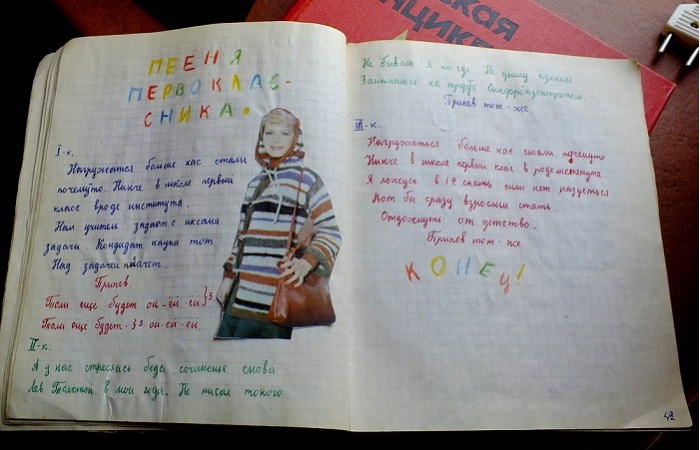 ПЕЕНЯ
ПЕРВОКЛАС-
СНИКА.
I-к.
Нагружатся больше нас стали
почемуто. Нинче в школе первый
класс вроде института.
Нам учитель задает с иксами
задачи. Кондидат науки тот
Над задачей плачет.
Припев
Толи еще будет ой-ёй-ёй }3
Толи еще будет - }3 ой-ёй-ёй.
II-к
А у нас стреслась беда сочиненье снова
Лев Толстой в мои года. Не писал токого
Не бываю я ни где. Не дышу озоном
Занимаюсь на труде Синхрофазотроном.
Припев тот-же.
III-к.
Нагружаться больше нас стали почемуто
Нинче в школе первый клас в роде института
Я ложусь в 12 спать сил нет раздеться
Вот бы сразу взрослым стать
Отдохнуть от детство.
Припев тот-же
КОНЕЦ!
42
ская
нцикл